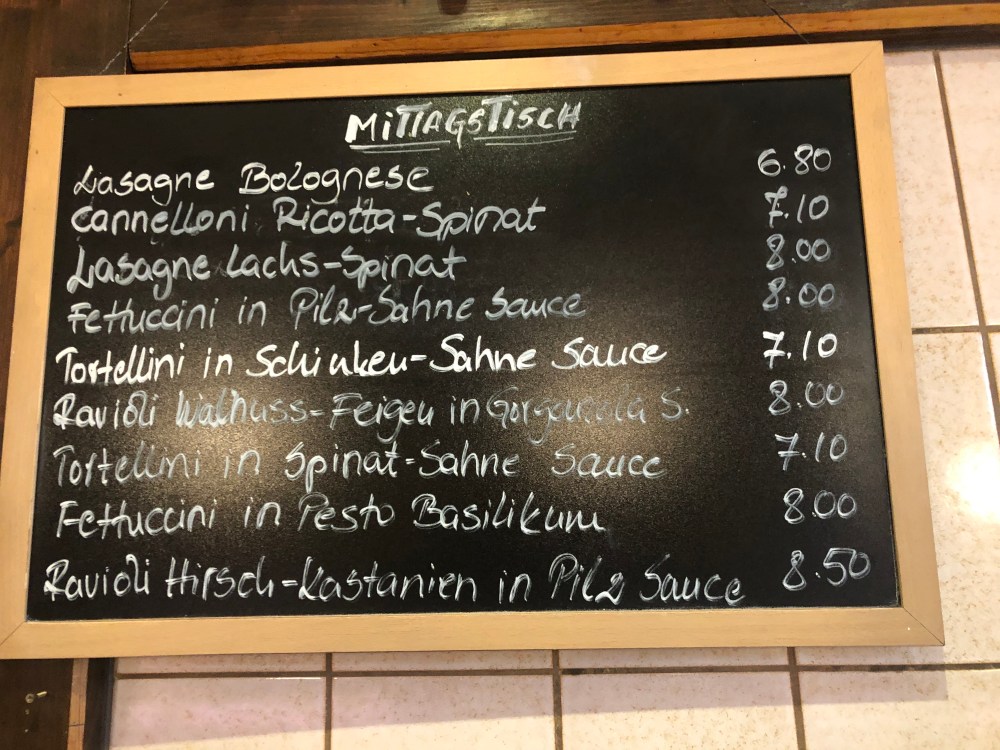 MiTTAGSTiSCH
Lasagne Bolognese 6.80
Cannelloni Ricotta-Spinat 7.10
Lasagne Lachs-Spinat 8.00
Fettuccini in Pilz-Sahne Sauce 8.00
Tortellini in Schinken-Sahne Sauce 7.10
Ravioli Walnuss-Feigen in Gorgonzola S. 8.00
Tortellini in Spinat-Sahne Sauce 7.10
Fettuccini in Pesto Basilikum 8.00
Ravioli Hirsch-Kastanien in Pilz Sauce 8.50